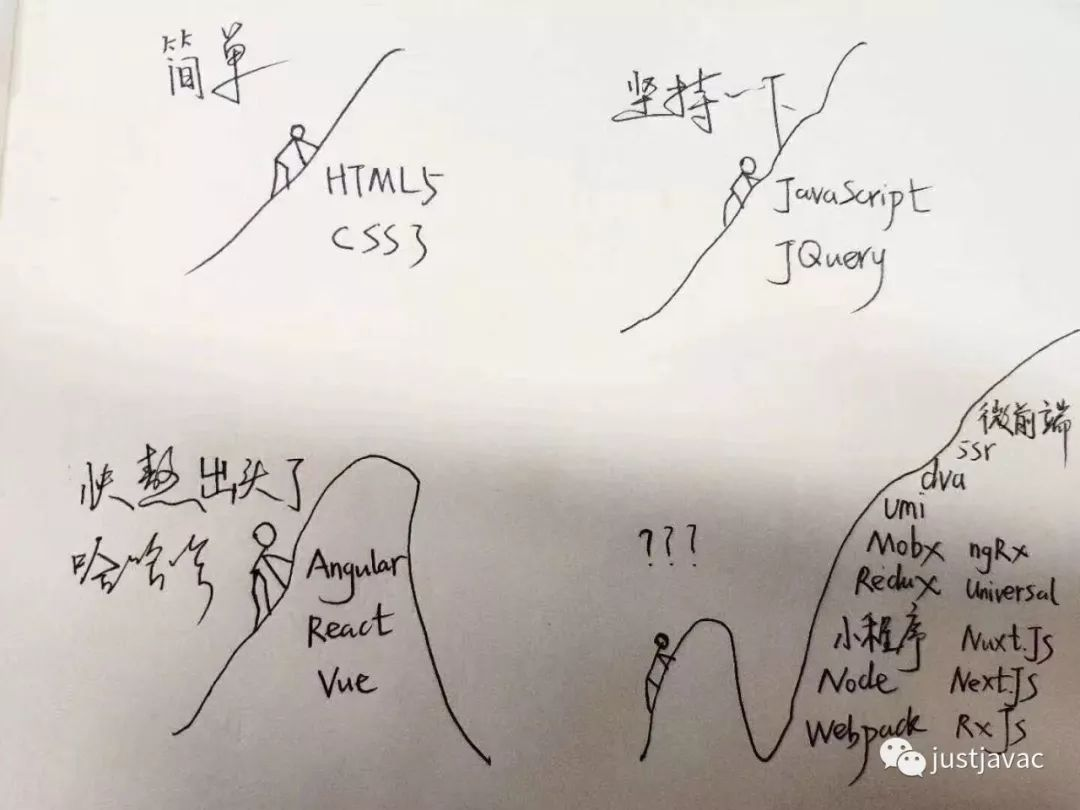 简单
HTML5
CSS3
坚持一下
JavaScript
JQuery
快熬出头了
哈哈哈
Angular
React
Vue
???
微前端
ssr
dva
umi
Mobx ngRx
Redux Universal
小程序 Nuxt.Js
Node Next.Js
Webpack RxJs
justjavac